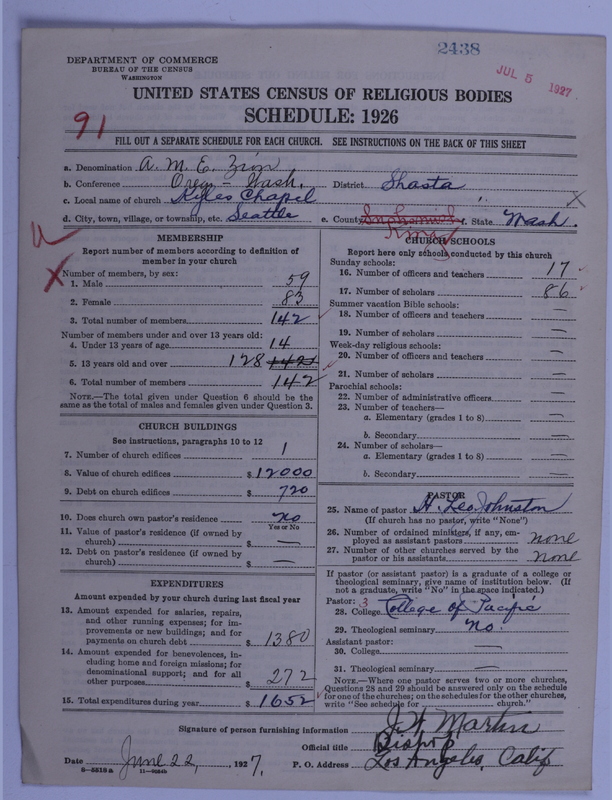 2438
JUL 5 1927
DEPARTMENT OF COMMERCE
BUREAU OF THE CENSUS
WASHINGTON
UNITED STATES CENSUS OF RELIGIOUS BODIES
SCHEDULE: 1926
91
FILL OUT A SEPARATE SCHEDULE FOR EACH CHURCH. SEE INSTRUCTIONS ON THE BACK OF THIS SHEET
a. Denomination A. M. E. Zion
b. Conference Oreg - Wash. District Shasta
c. Local name of church Kyles Chapel
d. City, town, village, or township, etc. Seattle e. County King f. State Wash.
MEMBERSHIP
Report number of members according to definition of
member in your church
Number of members, by sex:
1. Male 59
2. Female 83
3. Total number of members 142
Number of members under and over 13 years old:
4. Under 13 years of age 14
5. 13 years old and over 128 142
6. Total number of members 142
NOTE.—The total given under Question 6 should be
same as the total of males and females given under Question 3.
CHURCH BUILDINGS
See instructions, paragraphs 10 to 12
7. Number of church edifices 1
8. Value of church edifices $ 12000
9. Debt on church edifices $ 720
10. Does church own pastor's residence no
Yes or No
11. Value of pastor's residence (if owned by
church) $ —
12. Debt on pastor's residence (if owned by
church) $ —
EXPENDITURES
Amount expended by your church during last fiscal year
13. Amount expended for salaries, repairs,
and other running expenses; for im-
provements or new buildings; and for
payments on church debt $ 1380
14. Amount expended for benevolences, in-
cluding home and foreign missions; for
denominational support; and for all
other purposes $ 272
15. Total expenditures during year $ 1652
CHURCH SCHOOLS
Report here only schools conducted by this church
Sunday schools:
16. Number of officers and teachers 17
17. Number of scholars 86
Summer vacation Bible schools:
18. Number of officers and teachers —
19. Number of scholars —
Week-day religious schools:
20. Number of officers and teachers —
21. Number of scholars —
Parochial schools:
22. Number of administrative officers —
23. Number of teachers—
a. Elementary (grades 1 to 8) —
b. Secondary —
24. Number of scholars—
a. Elementary (grades 1 to 8) —
b. Secondary —
PASTOR
25. Name of pastor H. Leo Johnston
(If church has no pastor, write "None")
26. Number of ordained ministers, if any, em-
ployed as assistant pastors none
27. Number of other churches served by the
pastor or his assistants none
If pastor (or assistant pastor) is a graduate of a college or
theological seminary, give name of institution below. (If
not a graduate, write "No" in the space indicated.)
Pastor: 3
28. College College of Pacific
29. Theological seminary No.
Assistant pastor:
30. College —
31. Theological seminary —
NOTE.—Where one pastor serves two or more churches,
Questions 28 and 29 should be answered only on the schedule
for one of the churches; on the schedules for the other churches,
write "See schedule for church."
Signature of person furnishing information J W Martin
Official title Bishop
Date June 22, 1927. P. O. Address Los Angeles, Calif